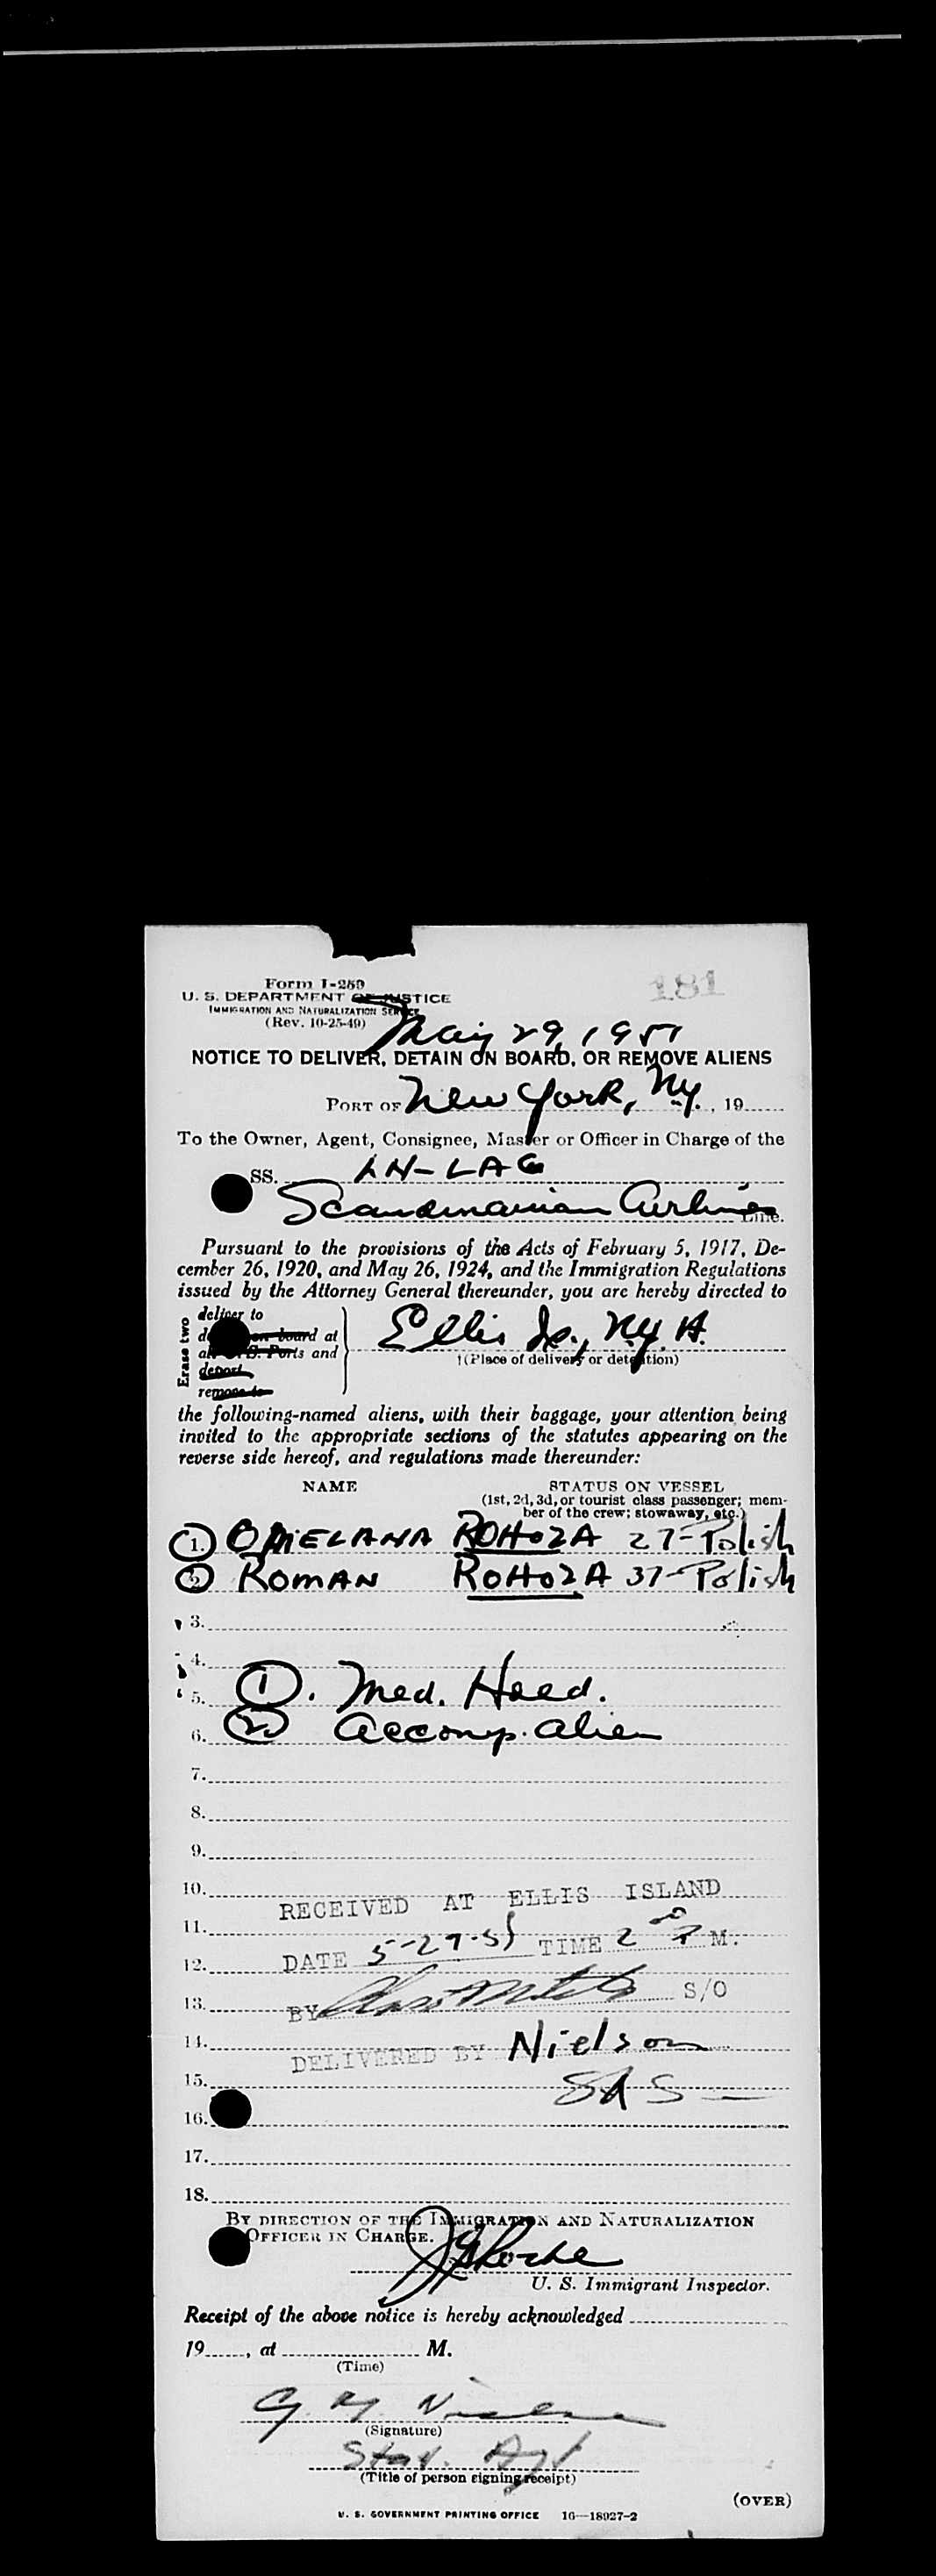 Form I-259
181
U. S. DEPARTMENT OF JUSTICE
IMMIGRATION AND NATURALIZATION SERVICE
(Rev. 10-25-49)
May 29, 1951
NOTICE TO DELIVER, DETAIN ON BOARD, OR REMOVE ALIENS
PORT OF New York, N.Y., 19
To the Owner, Agent, Consignee, Master or Officer in Charge of the
SS. LN-LAG
Scandinavian Airlines Line.
Pursuant to the provisions of the Acts of February 5, 1917, De-
cember 26, 1920, and May 26, 1924, and the Immigration Regulations
issued by the Attorney General thereunder, you are hereby directed to
Erase two
deliver to
on board at
U.S. Ports and
deport
remove to
Ellis Is., N.Y. H.
†(Place of delivery or detention)
the following-named aliens, with their baggage, your attention being
invited to the appropriate sections of the statutes appearing on the
reverse side hereof, and regulations made thereunder:
NAME STATUS ON VESSEL
(1st, 2d, 3d, or tourist class passenger; mem-
ber of the crew; stowaway, etc.)
1. OMELANA ROHOZA 27-Polish
2. ROMAN ROHOZA 37-Polish
3.
4.
5. 1. Med. Heed.
6. 2 accomp. alien
7.
8.
9.
10.
RECEIVED AT ELLIS ISLAND
11.
DATE 5-29-51 TIME 2 00 P M.
12.
13.
BY S/O
14.
DELIVERED BY Nielson
15. SAS
16.
17.
18.
BY DIRECTION OF THE IMMIGRATION AND NATURALIZATION
OFFICER IN CHARGE.
U. S. Immigrant Inspector.
Receipt of the above notice is hereby acknowledged
19, at M.
(Time)
(Signature)
Stat. Agt
(Title of person signing receipt)
(OVER)
U. S. GOVERNMENT PRINTING OFFICE 16—18927-2